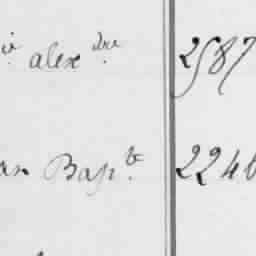 alex.dre 2587
Bap.te 2246